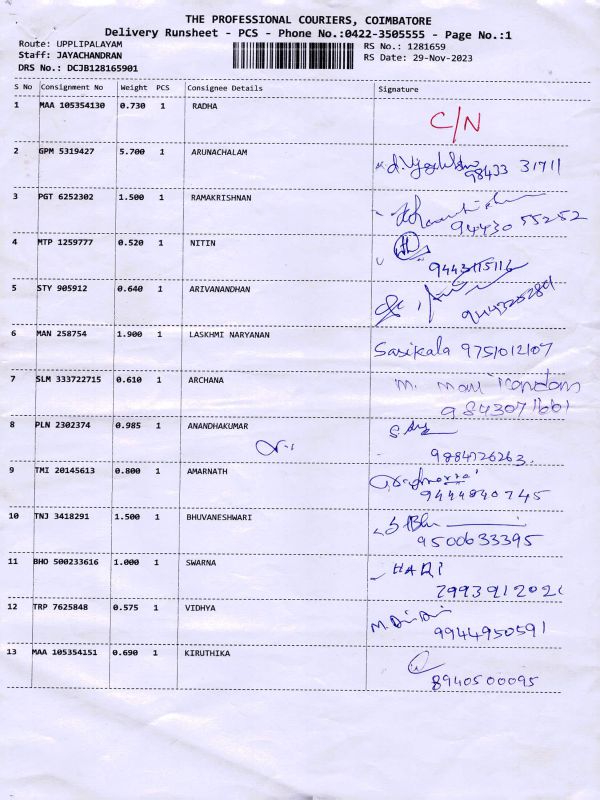 THE PROFESSIONAL COURIERS, COIMBATORE
Delivery Runsheet - PCS - Phone No.:0422-3505555 - Page No.:1
Route: UPPLIPALAYAM RS No.: 1281659
Staff: JAYACHANDRAN RS Date: 29-Nov-2023
DRS No.: DCJB128165901
S No Consignment No Weight PCS Consignee Details Signature
1 MAA 105354130 0.730 1 RADHA
C/N
2 GPM 5319427 5.700 1 ARUNACHALAM
98433 31711
3 PGT 6252302 1.500 1 RAMAKRISHNAN
94430 55252
4 MTP 1259777 0.520 1 NITIN
5 STY 905912 0.640 1 ARIVANANDHAN
6 MAN 258754 1.900 1 LASKHMI NARYANAN
Sasikala 9751012107
7 SLM 333722715 0.610 1 ARCHANA
M.
9843071661
8 PLN 2302374 0.985 1 ANANDHAKUMAR
9884726263
9 TMI 20145613 0.800 1 AMARNATH
9444840745
10 TNJ 3418291 1.500 1 BHUVANESHWARI
9500633395
11 BHO 500233616 1.000 1 SWARNA
HARI
12 TRP 7625848 0.575 1 VIDHYA
9944950591
13 MAA 105354151 0.690 1 KIRUTHIKA
8940500095